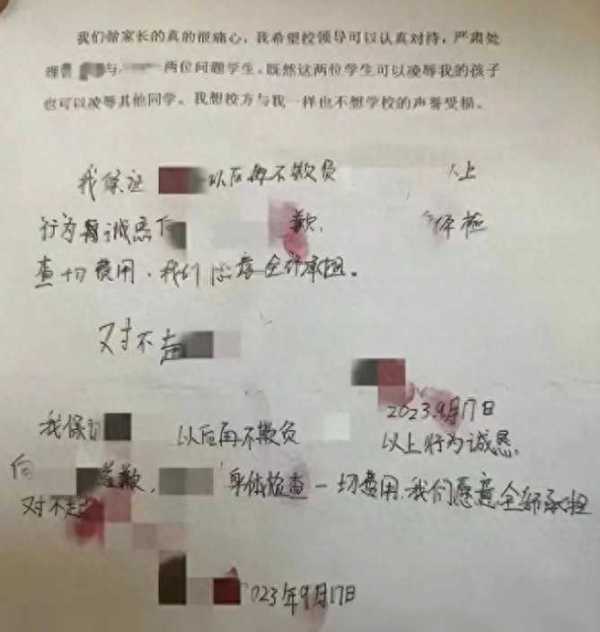 我们做家长的真的很痛心，我希望校领导可以认真对待，严肃处
理曹 与 两位问题学生。既然这两位学生可以凌辱我的孩子
也可以凌辱其他同学。我想校方与我一样也不想学校的声誉受损。
我保证 以后再不欺负 以上
行为 诚恳 歉， 体检
查一切费用，我们愿意全部承担。
对不起
2023.9月17日
我保 以后再不欺负 以上行为诚恳
向 道歉， 身体检查一切费用，我们愿意全部承担
对不起
023年9月17日